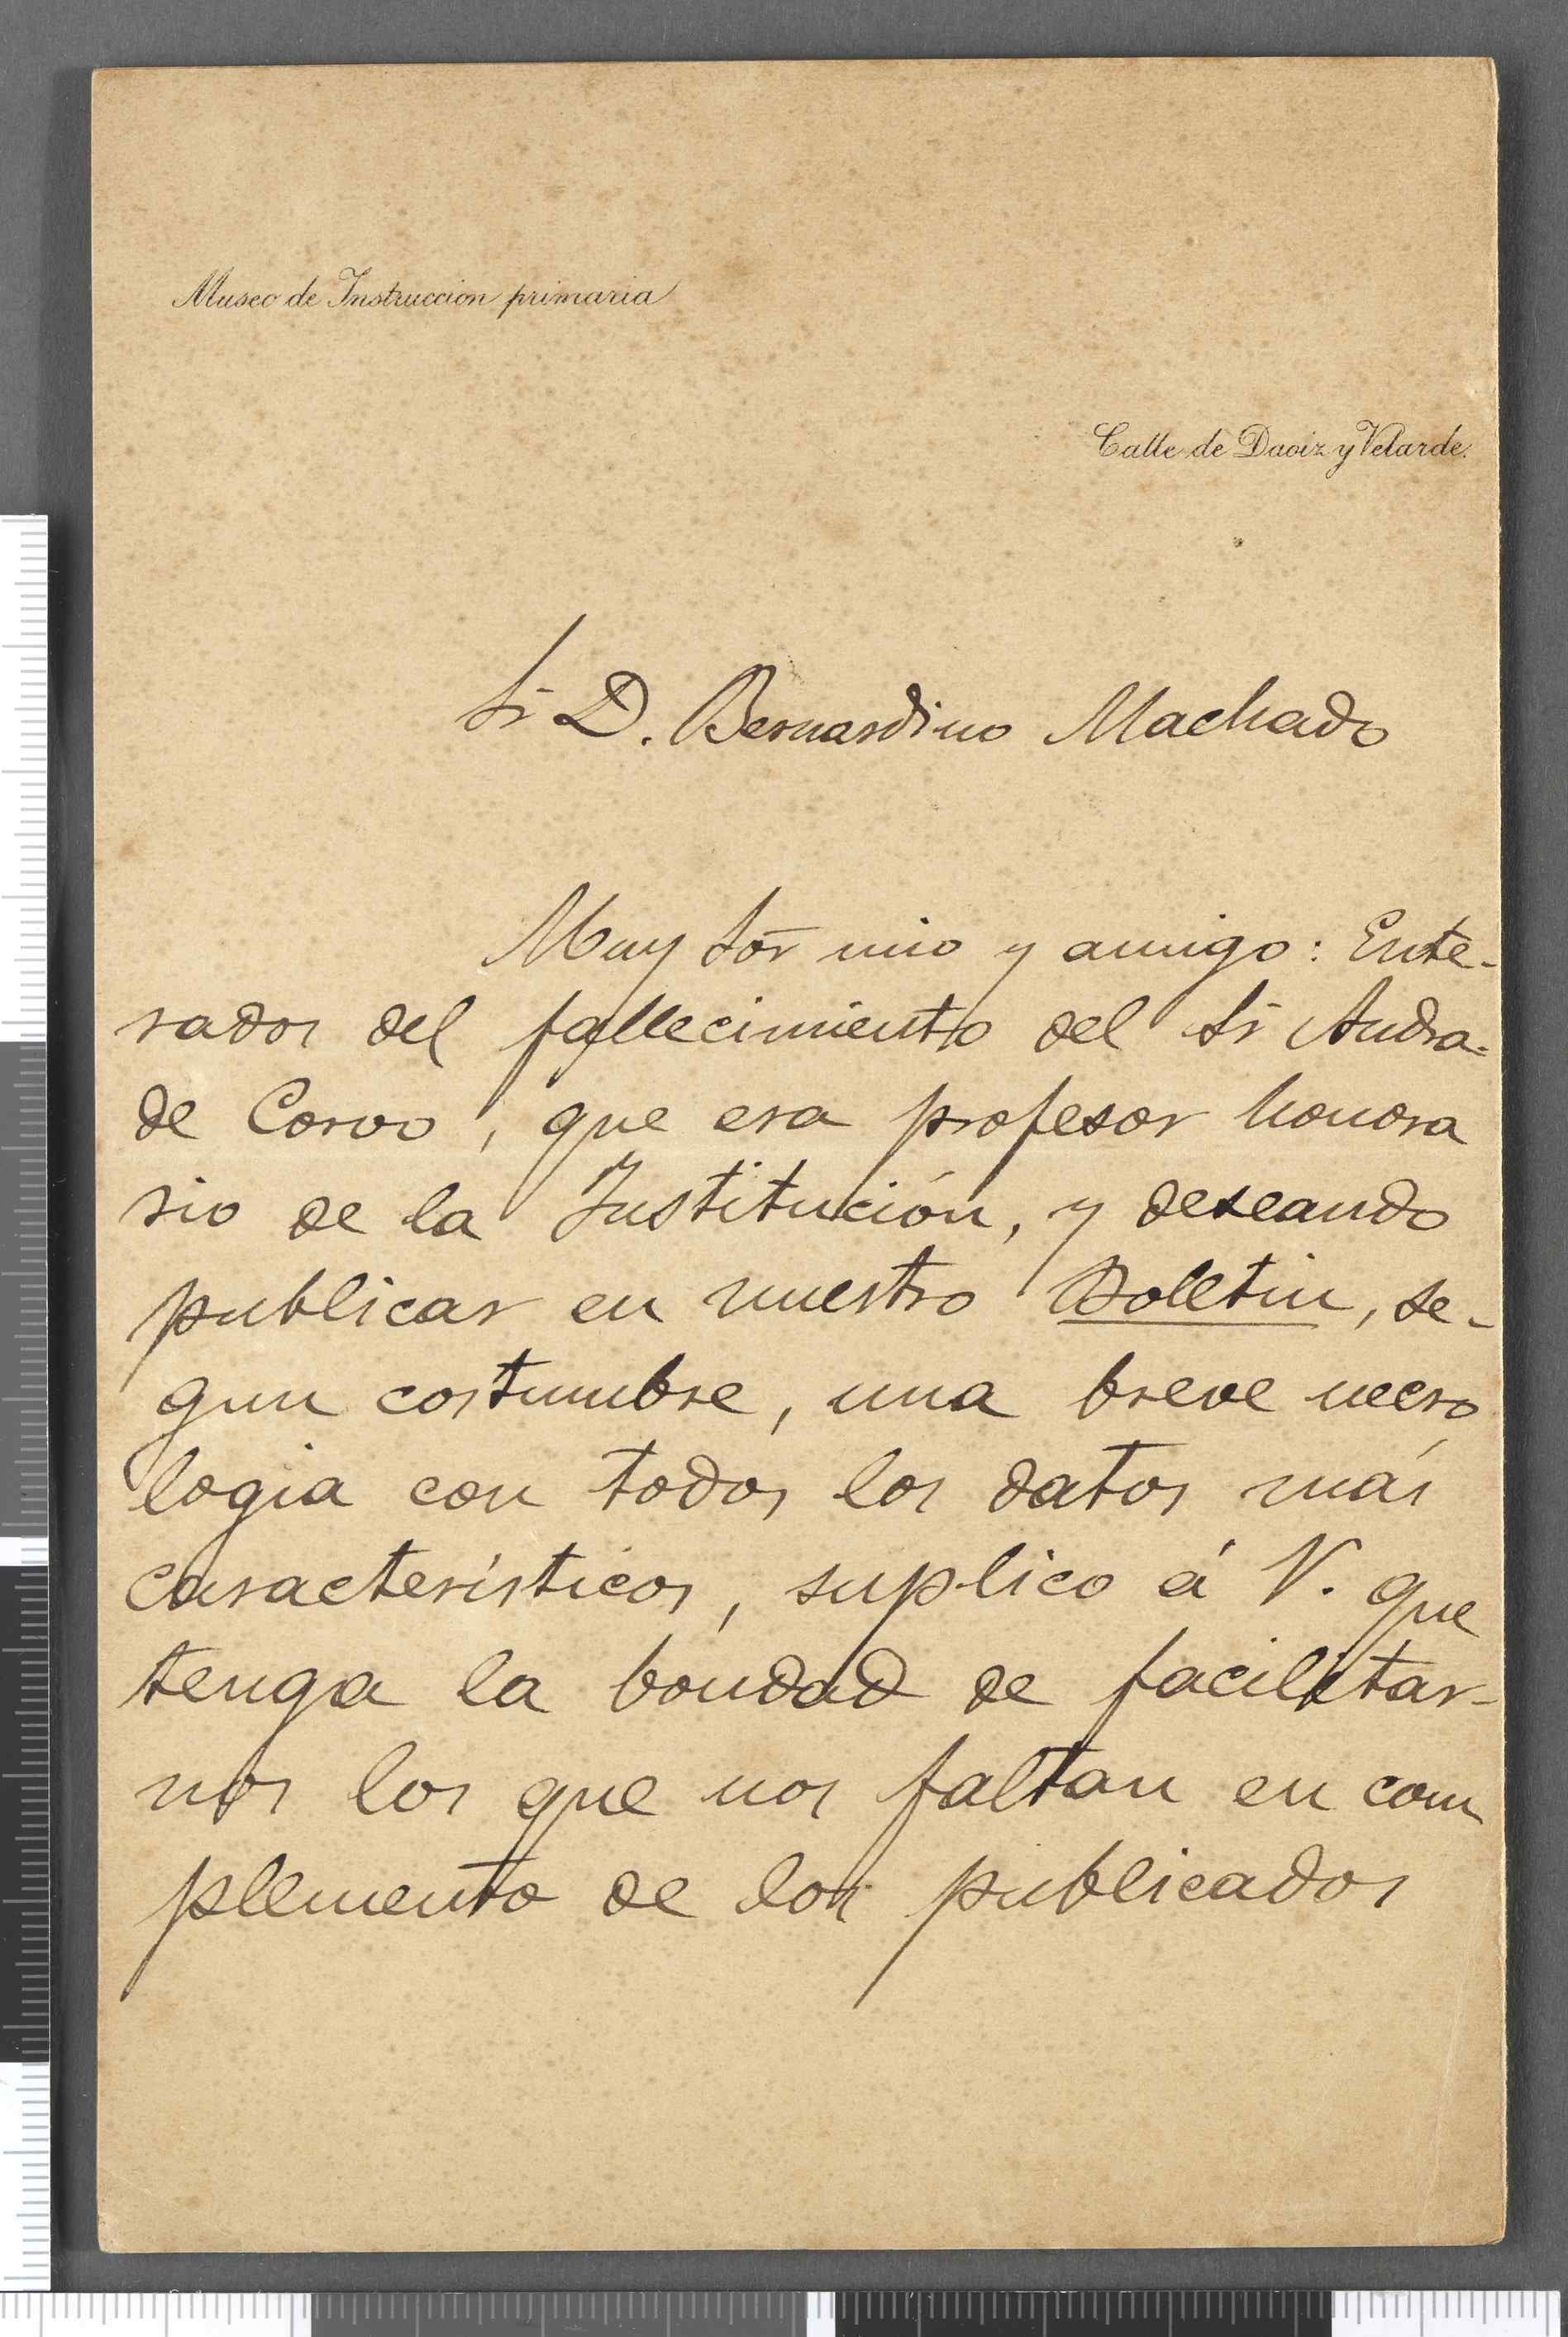 Museo de Instruccion primaria
Calle de Daoiz y Velarde.
Sr D. Bernardino Machado
Muy Sor mio y amigo: Ente-
rados del fallecimiento del Sr Andra-
de Corvo, que era profesor honora
rio de la Institución, y deseando
publicar en nuestro Boletin, se-
gun costumbre, una breve necro
logia con todos los datos más
característicos, suplico á V. que
tenga la bondad de facilitar-
nos los que nos faltan en com
plemento de los publicados